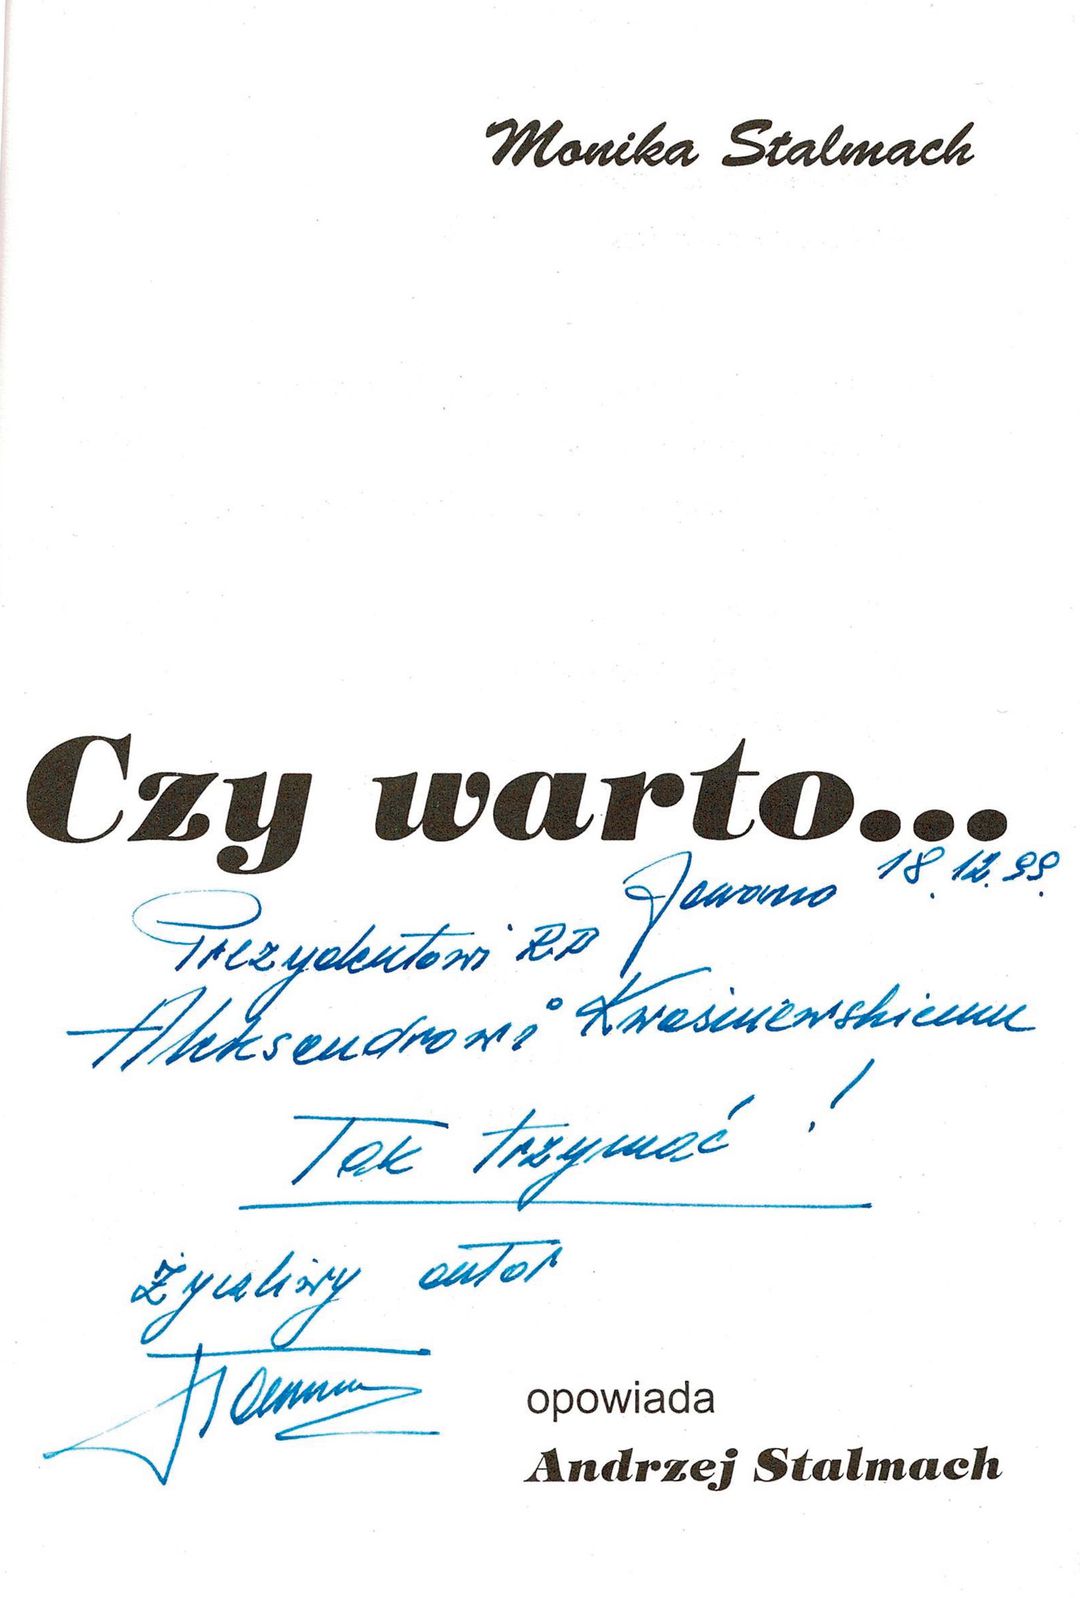 Monika Stalmach
Czy warto...
18.12.99.
Prezydentowi RP
Aleksandrowi Kwaśniewskiemu
Tak trzymać !
Życzliwy autor
opowiada
Andrzej Stalmach